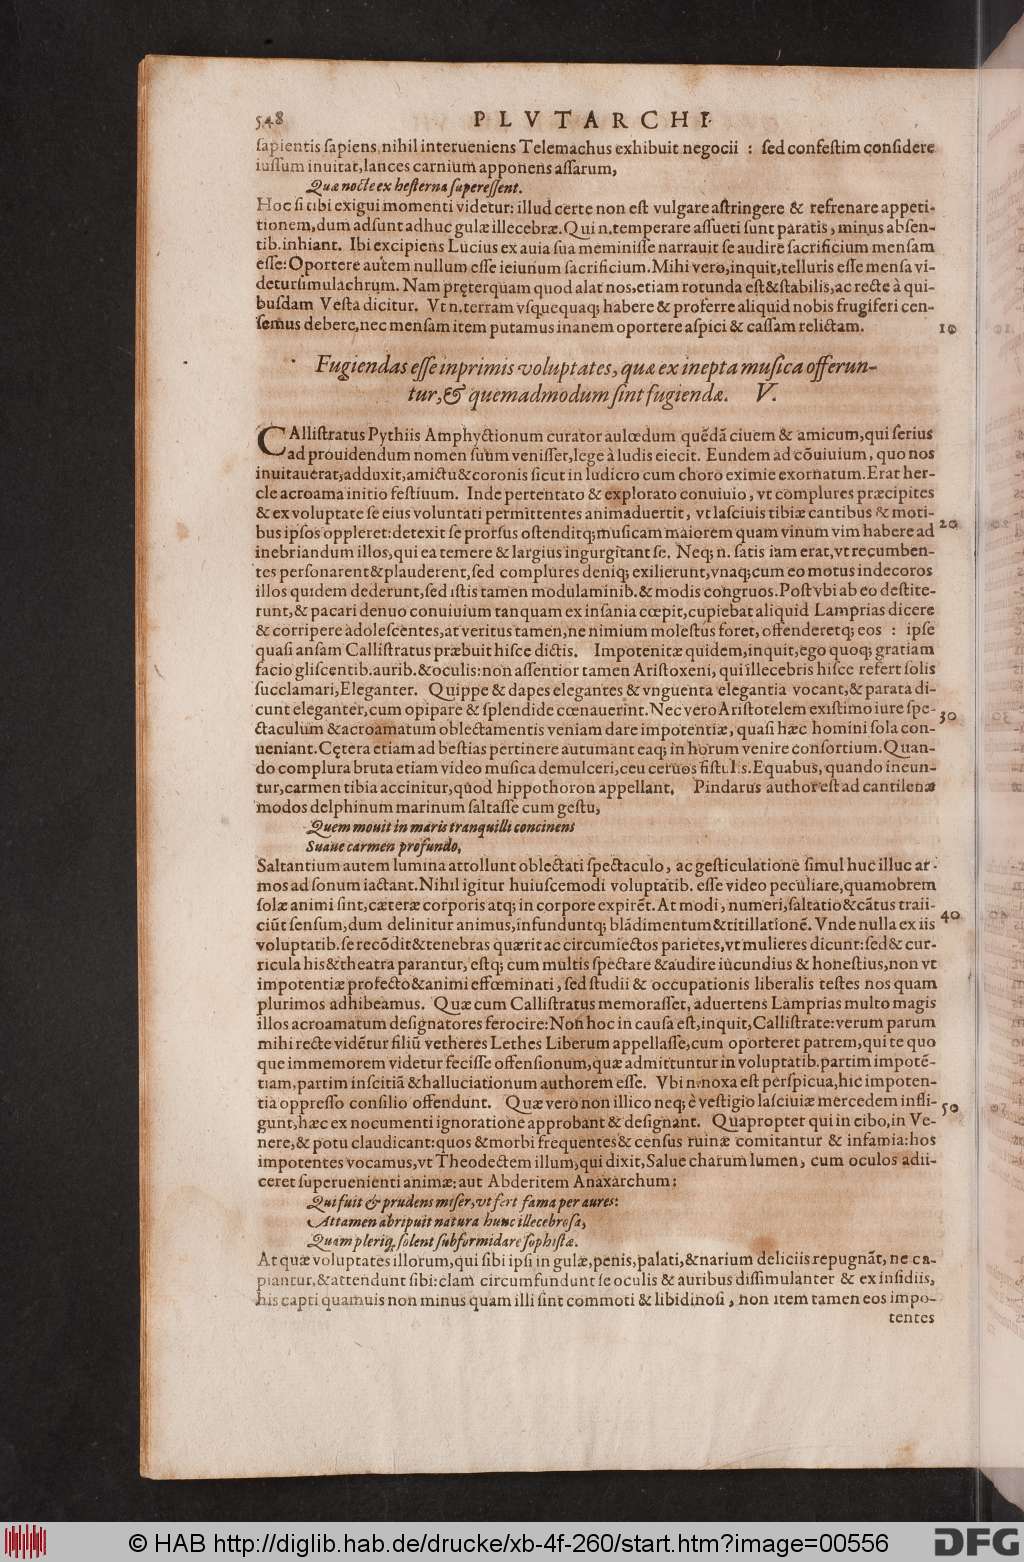 548 PLVTARCHI
sapientis sapiens nihil interueniens Telemachus exhibuit negocii : sed confestim considere
iussum inuitat, lances carnium apponens assarum,
Quæ nocte ex hesterna superessent.
Hoc si tibi exigui momenti videtur: illud certe non est vulgare astringere & refrenare appeti-
tionem, dum adsunt adhuc gulæ illecebræ. Qui n. temperare assueti sunt paratis, minus absen-
tib. inhiant. Ibi excipiens Lucius ex auia sua meminisse narrauit se audire sacrificium mensam
esse: Oportere autem nullum esse ieiunum sacrificium. Mihi vero, inquit, telluris esse mensa vi-
detur simulachrum. Nam pręterquam quod alat nos, etiam rotunda est & stabilis, ac recte à qui-
busdam Vesta dicitur. Vt n. terram vsquequaq; habere & proferre aliquid nobis frugiferi cen-
semus debere, nec mensam item putamus inanem oportere aspici & cassam relictam. 10
Fugiendas esse inprimis voluptates, quæ ex inepta musica offerun-
tur, & quemadmodum sint fugiendæ. V.
CAllistratus Pythiis Amphyctionum curator aulœdum quẽdã ciuem & amicum, qui serius
ad prouidendum nomen suum venisset, lege à ludis eiecit. Eundem ad cõuiuium, quo nos
inuitauerat, adduxit, amictu & coronis sicut in ludicro cum choro eximie exornatum. Erat her-
cle acroama initio festiuum. Inde pertentato & explorato conuiuio, vt complures præcipites
& ex voluptate se eius voluntati permittentes animaduertit, vt lasciuis tibiæ cantibus & moti-
bus ipsos oppleret: detexit se prorsus ostenditq; musicam maiorem quam vinum vim habere ad 20
inebriandum illos, qui ea temere & largius ingurgitant se. Neq; n. satis iam erat, vt recumben-
tes personarent & plauderent, sed complures deniq; exilierunt, vnaq; cum eo motus indecoros
illos quidem dederunt, sed istis tamen modulaminib. & modis congruos. Post vbi ab eo destite-
runt, & pacari denuo conuiuium tanquam ex insania cœpit, cupiebat aliquid Lamprias dicere
& corripere adolescentes, at veritus tamen, ne nimium molestus foret, offenderetq; eos : ipse
quasi ansam Callistratus præbuit hisce dictis. Impotenitæ quidem, inquit, ego quoq; gratiam
facio gliscentib. aurib. & oculis: non assentior tamen Aristoxeni, qui illecebris hisce refert solis
succlamari, Eleganter. Quippe & dapes elegantes & vnguenta elegantia vocant, & parata di-
cunt eleganter, cum opipare & splendide cœnauerint. Nec vero Aristotelem existimo iure spe-
ctaculum & acroamatum oblectamentis veniam dare impotentiæ, quasi hæc homini sola con- 30
ueniant. Cętera etiam ad bestias pertinere autumant eaq; in horum venire consortium. Quan-
do complura bruta etiam video musica demulceri, ceu ceruos fistulis. Equabus, quando ineun-
tur, carmen tibia accinitur, quod hippothoron appellant. Pindarus author est ad cantilenæ
modos delphinum marinum saltasse cum gestu,
Quem mouit in maris tranquilli concinens
Suaue carmen profundo,
Saltantium autem lumina attollunt oblectati spectaculo, ac gesticulatione simul huc illuc ar-
mos ad sonum iactant. Nihil igitur huiuscemodi voluptatib. esse video peculiare, quamobrem
solæ animi sint, cæteræ corporis atq; in corpore expirẽt. At modi, numeri, saltatio & cãtus traii-
ciũt sensum, dum delinitur animus, infunduntq; blãdimentum & titillationẽ. Vnde nulla ex iis 40
voluptatib. se recõdit & tenebras quærit ac circumiectos parietes, vt mulieres dicunt: sed & cur-
ricula his & theatra parantur, estq; cum multis spectare & audire iucundius & honestius, non vt
impotentiæ profecto & animi effœminati, sed studii & occupationis liberalis testes nos quam
plurimos adhibeamus. Quæ cum Callistratus memorasset, aduertens Lamprias multo magis
illos acroamatum designatores ferocire: Non hoc in causa est, inquit, Callistrate: verum parum
mihi recte vidẽtur filiũ vetheres Lethes Liberum appellasse, cum oporteret patrem, qui te quo
que immemorem videtur fecisse offensionum, quæ admittuntur in voluptatib. partim impotẽ-
tiam, partim inscitiã & halluciationum authorem esse. Vbi n. noxa est perspicua, hic impoten-
tia oppresso consilio offendunt. Quæ vero non illico neq; è vestigio lasciuiæ mercedem infli-
gunt, hæc ex nocumenti ignoratione approbant & designant. Quapropter qui in cibo, in Ve- 50
nere, & potu claudicant: quos & morbi frequentes & census ruinæ comitantur & infamia: hos
impotentes vocamus, vt Theodectem illum, qui dixit, Salue charum lumen, cum oculos adii-
ceret superuenienti animæ: aut Abderitem Anaxarchum:
Qui fuit & prudens miser, vt fert fama per aures:
Attamen abripuit natura hunc illecebrosa,
Quam pleriq; solent subformidare sophistæ.
At quæ voluptates illorum, qui sibi ipsi in gulæ, penis, palati, & narium deliciis repugnãt, ne ca-
piantur, & attendunt sibi: clam circumfundunt se oculis & auribus dissimulanter & ex insidiis,
his capti quamuis non minus quam illi sint commoti & libidinosi, non item tamen eos impo-
tentes
© HAB http://diglib.hab.de/drucke/xb-4f-260/start.htm?image=00556 DFG